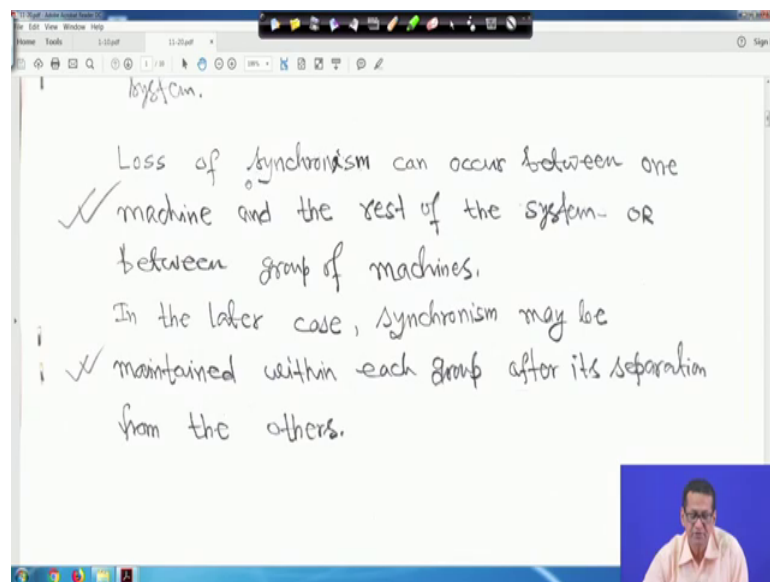 11-20.pdf - Adobe Acrobat Reader DC
File Edit View Window Help
Home Tools 1-10.pdf 11-20.pdf × Sign
1 / 10
system.
Loss of synchronism can occur between one
machine and the rest of the system- OR
between group of machines.
In the later case, synchronism may be
maintained within each group after its separation
from the others.